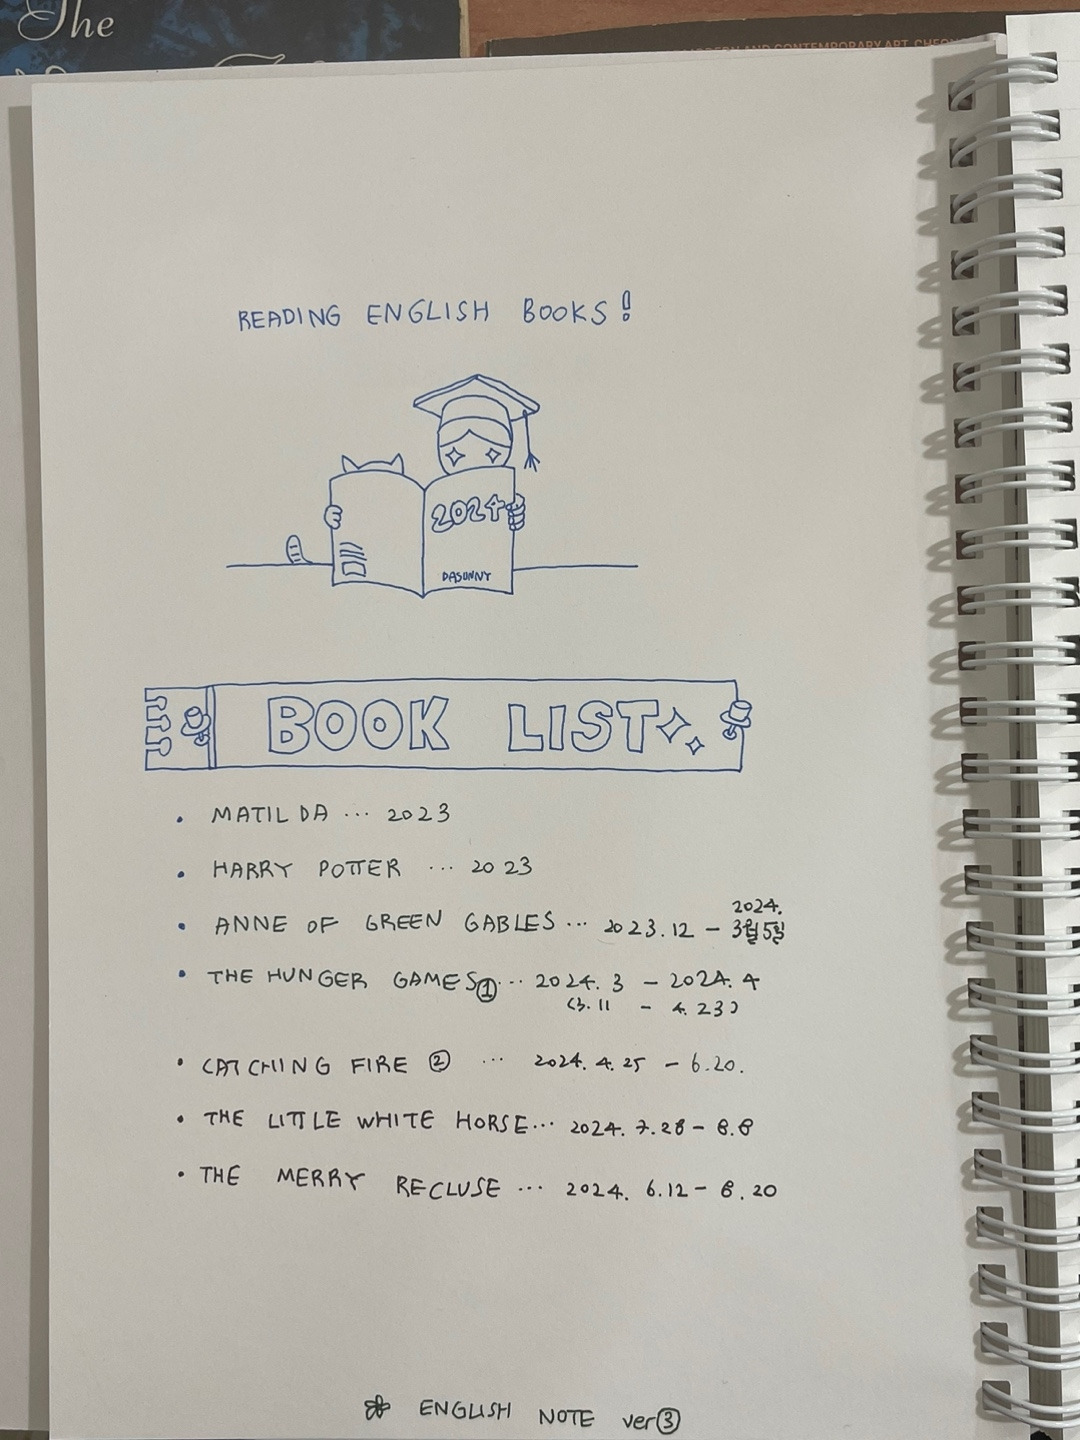 The
MODERN AND CONTEMPORARY ART, CHEON
READING ENGLISH BOOKS!
2024
DASUNNY
BOOK LIST
• MATILDA ... 2023
• HARRY POTTER ... 2023
• ANNE OF GREEN GABLES ... 2023.12 - 2024. 3월5일
• THE HUNGER GAMES ① ... 2024. 3 - 2024. 4
(3.11 - 4.23)
• CATCHING FIRE ② ... 2024. 4. 25 - 6.20.
• THE LITTLE WHITE HORSE... 2024. 7.28 - 8.8
• THE MERRY RECLUSE ... 2024. 8.12 - 8.20
ENGLISH NOTE ver③